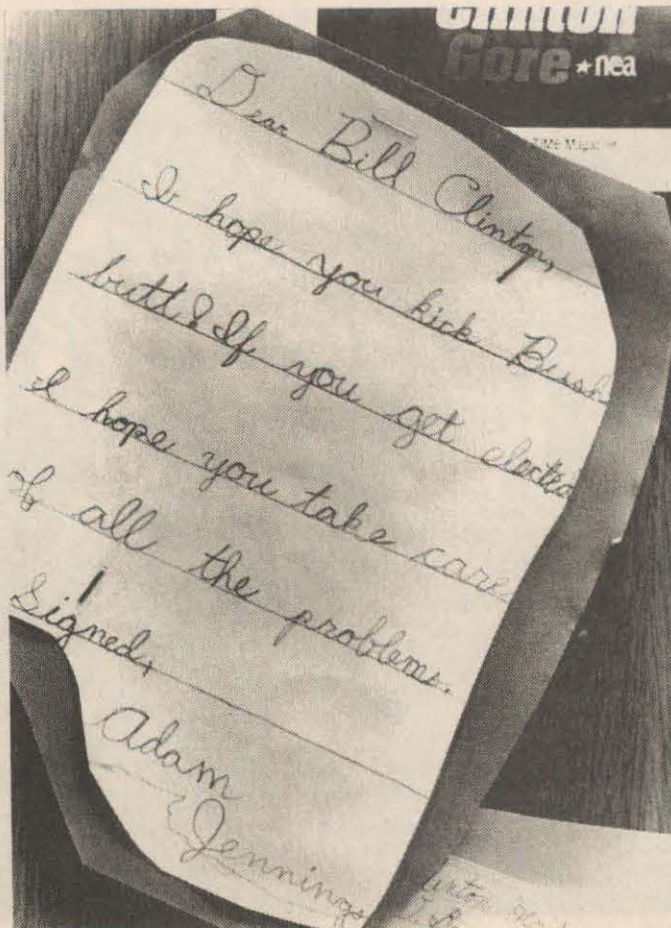 Clinton
Gore ★ nea
TIME Magazine
Dear Bill Clinton,
I hope you kick Bush
butt! If you get elected
I hope you take care
of all the problems.
Signed,
Adam
Jennings